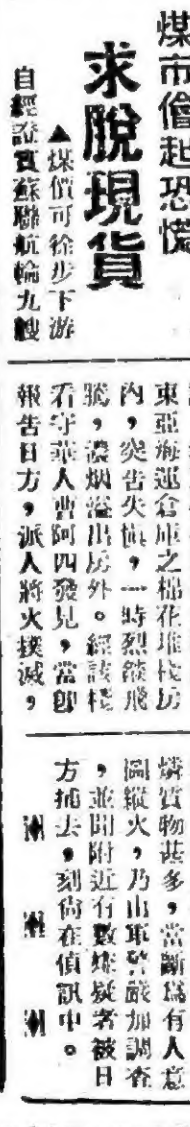 煤市儈起恐慌
求脫現貨
▲煤價可徐步下游
自經證實蘇聯航輪九艘
東亞海運倉庫之棉花堆棧房
內，突告失慎，一時烈燄飛
騰，濃烟溢出房外。經該棧
看守華人曹阿四發見，當卽
報告日方，派人將火撲滅，
燐質物甚多，當斷為有人意
圖縱火，乃由軍警嚴加調查
，並聞附近有數嫌疑者被日
方捕去，刻尙在偵訊中。